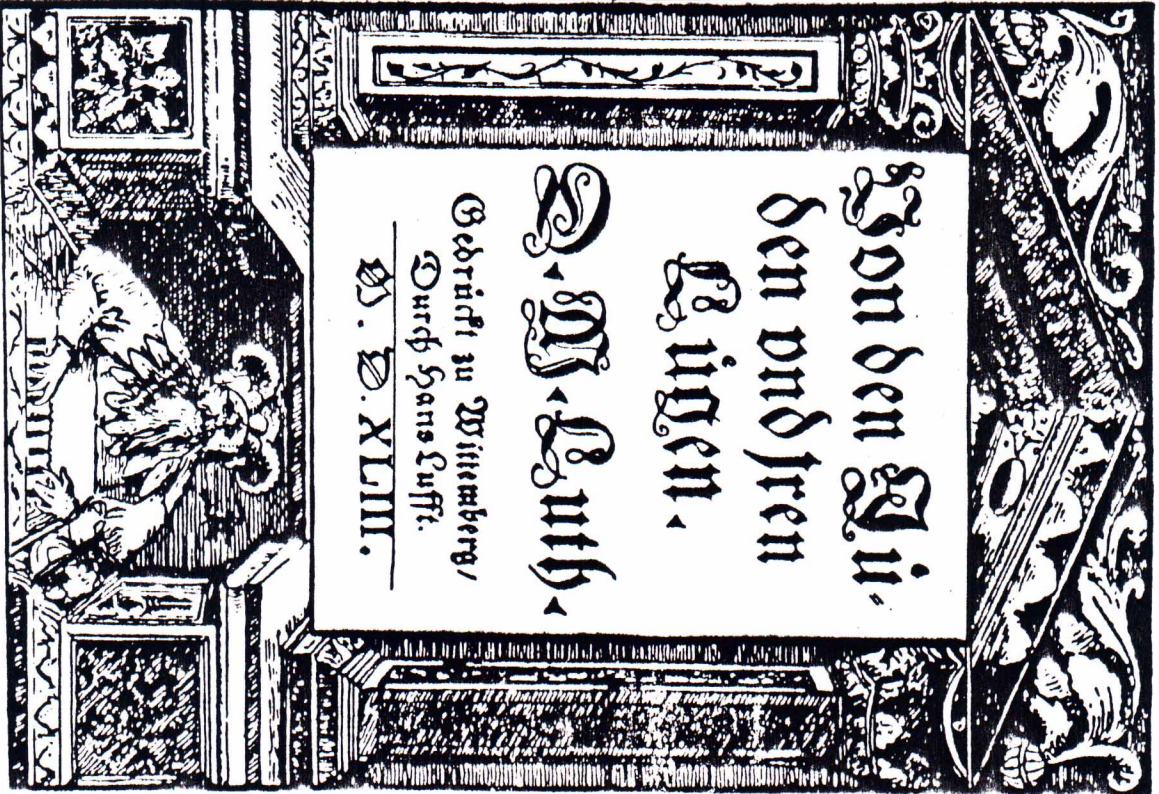 Von den Jü-
den vnd jren
Lügen.
D. M. Luth.
Gedrückt zu Wittemberg/
Durch Hans Lufft.
M. D. XLIII.